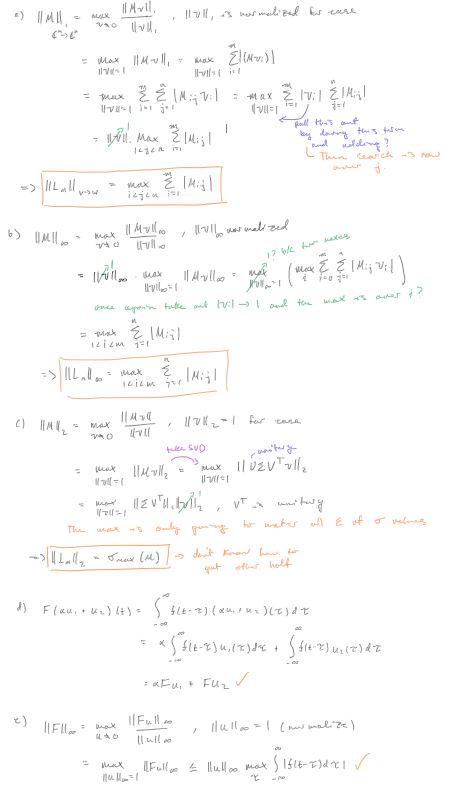 a) ||M||₁ = max_{v≠0} ||Mv||₁ / ||v||₁ , ||v||₁ is normalized for ease
ℂⁿ→ℂⁿ
= max_{||v||=1} ||Mv||₁ = max_{||v||=1} Σ_{i=1}^{m} |(Mv_i)|
= max_{||v||=1} Σ_{i=1}^{m} Σ_{j=1}^{n} |M_ij v_i| = max_{||v||=1} Σ_{i=1}^{m} |v_i| Σ_{j=1}^{n} |M_ij|
pull this out
by doing this term
and adding?
Then search is now
over j.
= ||v||₁ max_{1<j<n} Σ_{i=1}^{m} |M_ij|
=> ||L_n||_{v→w} = max_{1<j<n} Σ_{i=1}^{m} |M_ij|
b) ||M||∞ = max_{v≠0} ||Mv||∞ / ||v||∞ , ||v||∞ normalized
1? b/c two maxes
= ||v||∞ · max_{||v||=1} ||Mv||∞ = max_{||v||∞=1} ( max_i Σ_{i=0}^{m} Σ_{j=1}^{n} |M_ij v_i| )
once again take out |v_i| → 1 and the max is over j?
= max_{1<i<m} Σ_{j=1}^{n} |M_ij|
=> ||L_n||∞ = max_{1<i<m} Σ_{j=1}^{n} |M_ij|
c) ||M||₂ = max_{v≠0} ||Mv|| / ||v|| , ||v||₂ = 1 for ease
take SVD unitary
= max_{||v||=1} ||Mv||₂ = max_{||v||=1} ||UΣVᵀv||₂
= max_{||v||=1} ||ΣVᵀ||₁ ||v||₂ , Vᵀ is unitary
The max is only going to matter w/ Σ of σ values
=> ||L_n||₂ = σ_max(M) → don't know how to
get other half
d) F(αu₁ + u₂)(t) = ∫_{-∞}^{∞} f(t-τ)(αu₁ + u₂)(τ)dτ
= α∫_{-∞}^{∞} f(t-τ)u₁(τ)dτ + ∫_{-∞}^{∞} f(t-τ)u₂(τ)dτ
= αFu₁ + Fu₂ ✓
e) ||F||∞ = max_{u≠0} ||Fu||∞ / ||u||∞ , ||u||∞ = 1 (normalize)
= max_{||u||∞=1} ||Fu||∞ ≤ ||u||∞ max_τ ∫_{-∞}^{∞} |f(t-τ)dτ| ✓